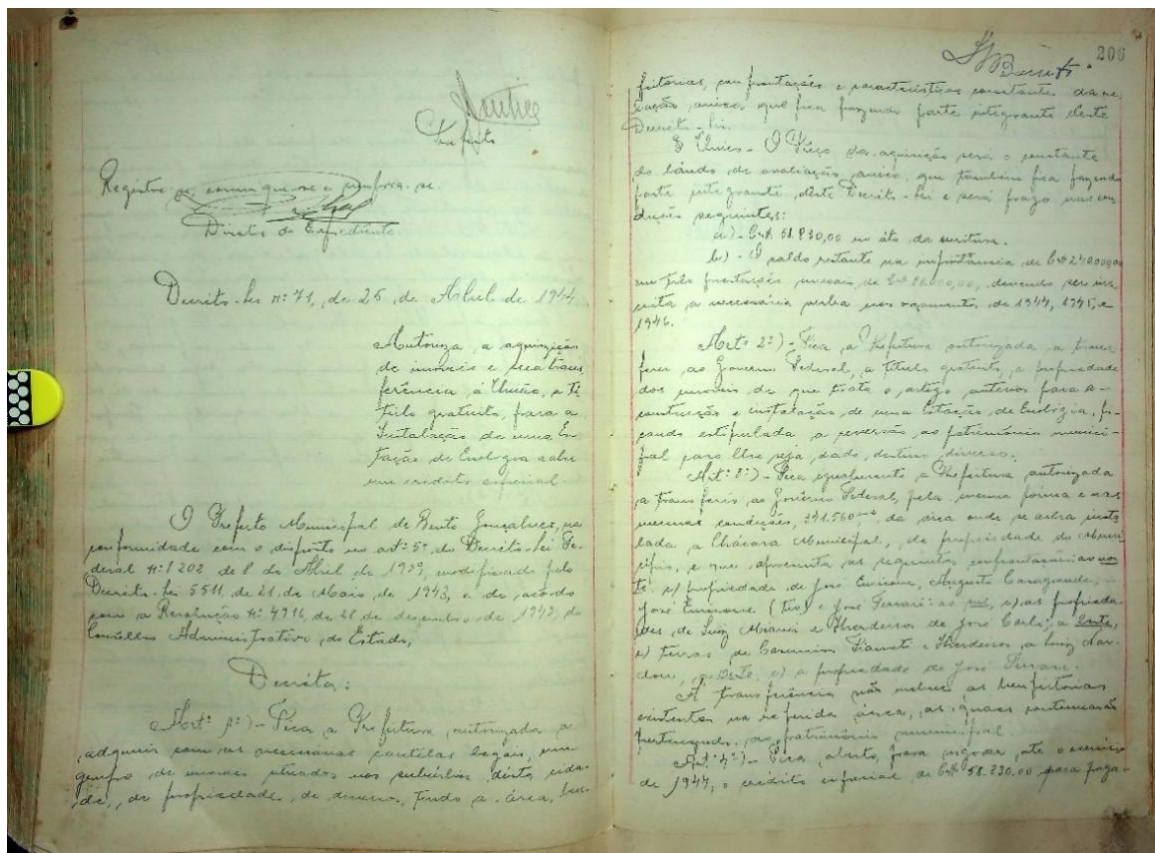 Prefeito
Registre-se, comunique-se e cumpra-se.
Diretor do Expediente
Decreto-lei nº 71, de 25 de Abril de 1944.
Autoriza a aquisição
de imoveis e sua trans
ferência á União, a tí
tulo gratuito, para a
Instalação de uma Es
tação de Enologia e abre
um credito especial.
O Prefeito Municipal de Bento Gonçalves, na
conformidade com o disposto no artº 5º do Decreto-lei Fe-
deral nº 1202 de 8 de Abril de 1939, modificado pelo
Decreto-lei 5511, de 21 de Maio de 1943, e de acordo
com a Resolução nº 4916, de 28 de dezembro de 1943, do
Conselho Administrativo do Estado,
Decreta:
Artº 1º) - Fica a Prefeitura, autorizada a
adquirir com as necessarias cautelas legais, um
grupo de imoveis situados nos suburbios desta cida-
de, de propriedade de diversos, tendo a área, ben-
206
feitorias, confrontações e caracteristicas constantes da re
lação anexa que fica fazendo parte integrante deste
Decreto-lei.
§ Único - O Preço da aquisição será o constante
do láudo de avaliação anexo, que tambem fica fazendo
parte integrante deste Decreto-lei e será pago nas con
dições seguintes:
a) - Cr$ 58.830,00 no áto da escritura.
b) - O saldo restante na importância de Cr$ 240.000,00
em três prestações anuais de Cr$ 80.000,00, devendo ser ins
crita a necessária verba nos orçamentos de 1944, 1945, e
1946.
Artº 2º) - Fica a Prefeitura autorizada a trans
ferir ao Governo Federal, a título gratuito, a propriedade
dos imoveis de que trata o artigo anterior para a
construção e instalação de uma Estação de Enologia, fi-
cando estipulada a reversão ao patrimônio munici-
pal caso lhe seja dado destino diverso.
Artº 3º) - Fica igualmente a Prefeitura autorizada
a transferir ao Govêrno Federal, pela mesma forma e nas
mesmas condições, da área onde se acha insta
lada a Chácara Municipal, de propriedade do Muni
cípio, e que apresenta as seguintes confrontações: ao nor
te c/ propriedade de José Augusto Casagrande,
José (tio) e José Ferrari: ao sul, c/ as proprieda
des de Luiz e Herdeiros de José Carli; a Leste,
c/ terras de e Herdeiros, a Luiz Nar
doni, a Oeste, c/ a propriedade de José Ferrari.
A transferência não inclue as benfeitorias
existentes na referida área, as quais continuarão
pertencendo ao patrimônio municipal.
Artº 4º) - Fica aberto, para vigorar até o exercicio
de 1944, o crédito especial de Cr$ 58.830.00 para paga-